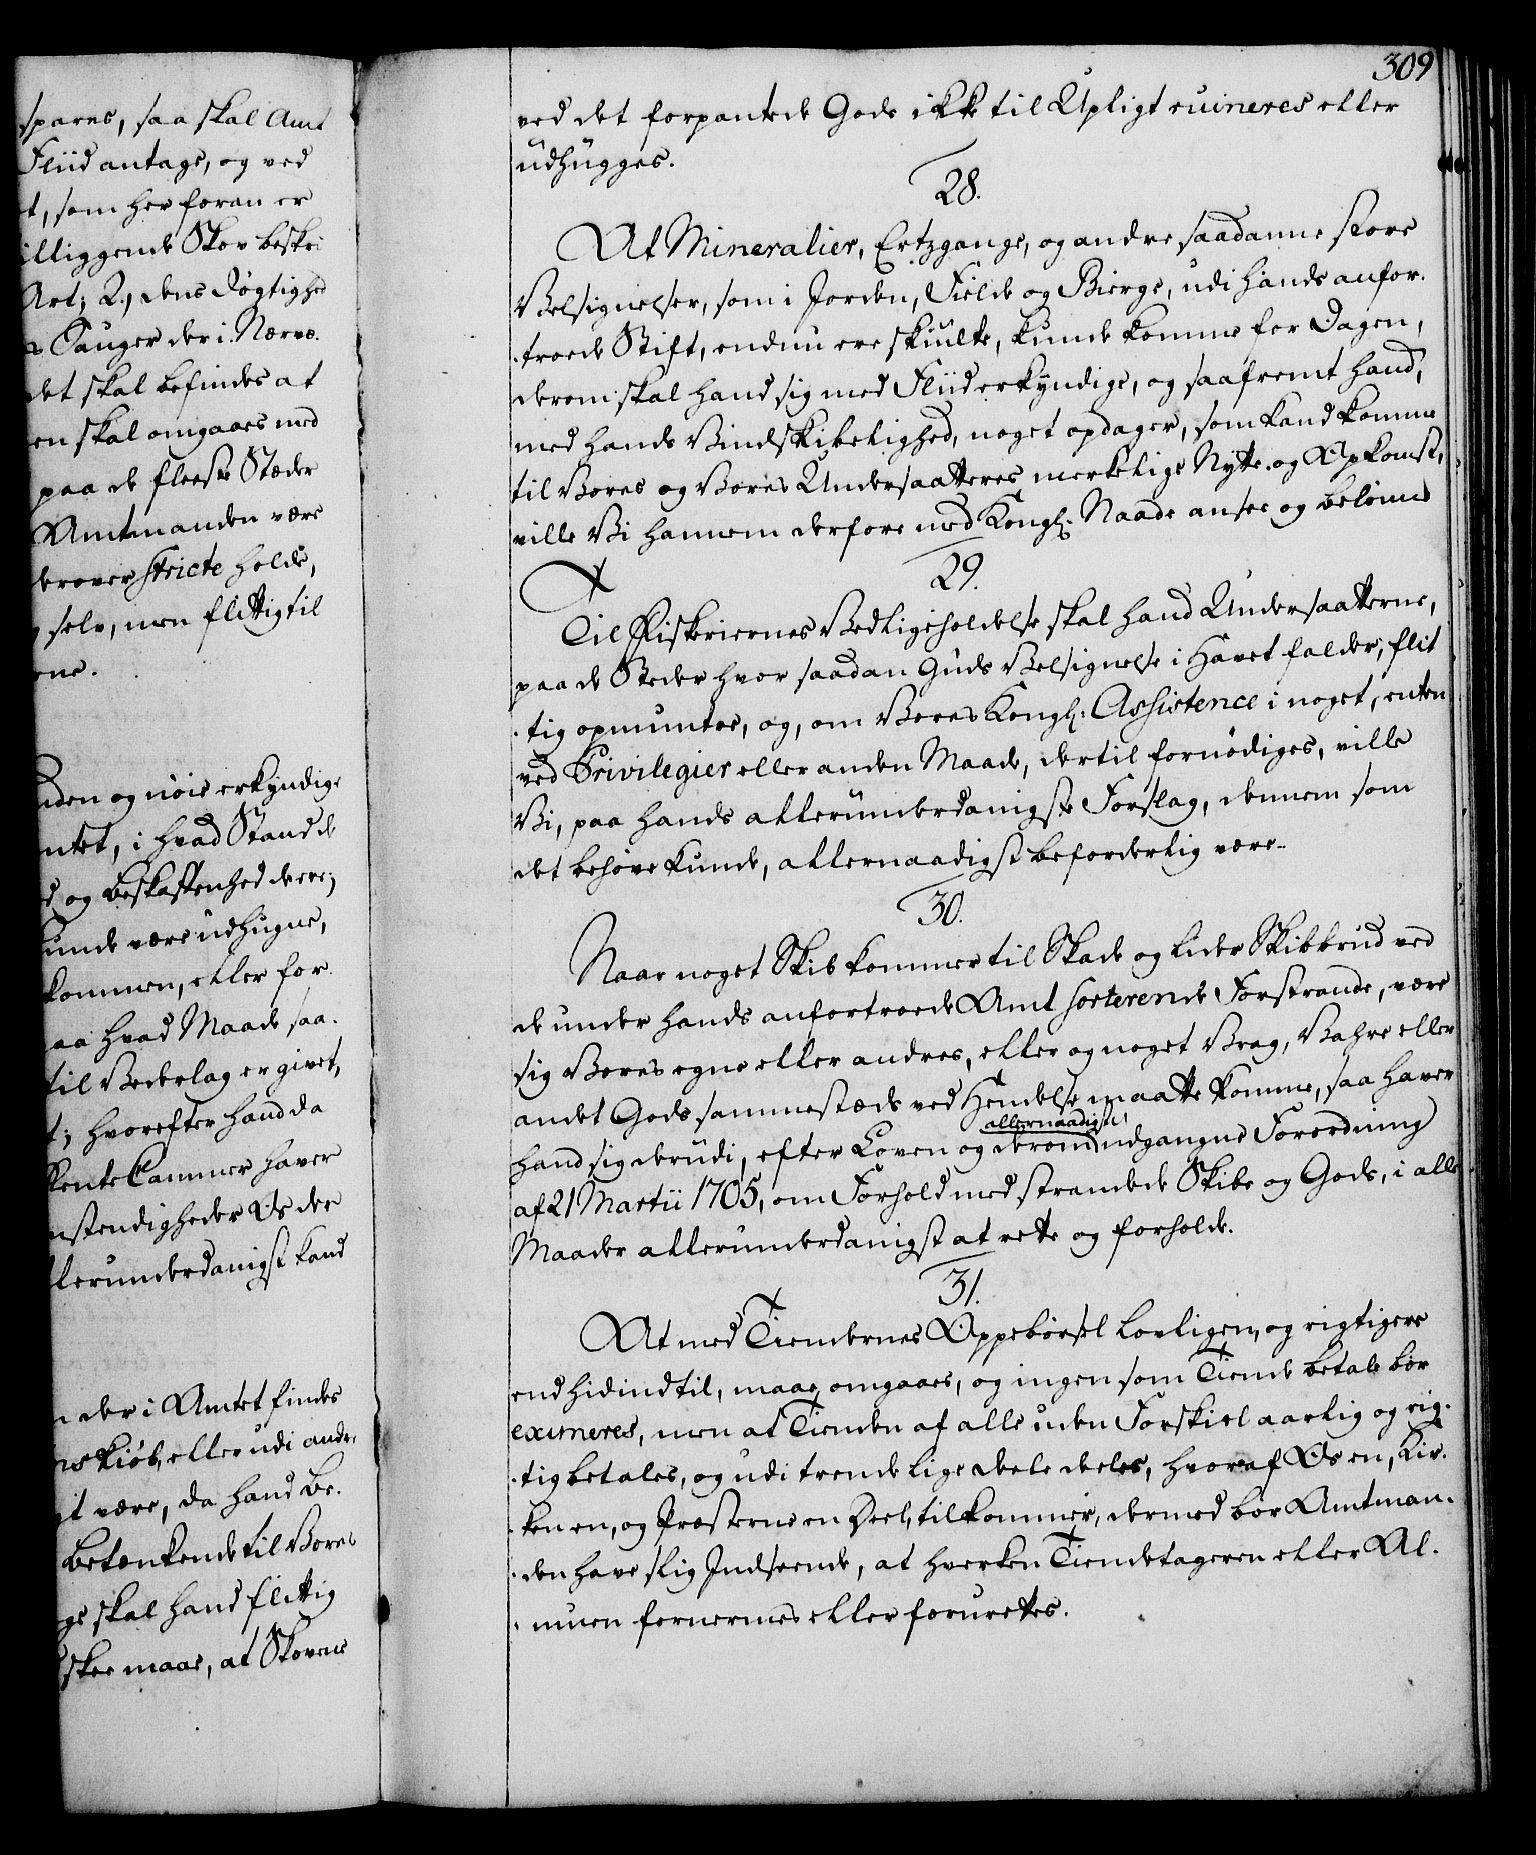 spares, saa skal Amt
Fliid antage, og ved
t, som her foran er
illiggende Skov beskri
Art; 2., dens Døgtighed
Sauger der i Nærvæ.
det skal befindes at
en skal omgaaes med
paa de fleeste Stæder
Amtmanden være
derover stricte holde,
selv, men flittig til
ene.
nden og nöie erkyndige
mtet, i hvad Stand de
d og beskaffenhed dere;
unde være udhugne,
kommen, eller for
aa hvad Maade saa.
til Vederlag er givet,
t; hvorefter hand da
RenteCammer haver
mstendigheder Os der
llerunderdanigst kand
n der i Amtet findes
nskiöb, eller udi andr.
it være, da hand be.
betænkende til Vores
ge skal hand flittig
skee maae, at Skovene
309
ved det forpantede Gods ikke til Upligt ruineres eller
udhugges.
28.
At Mineralier, Ertzgange, og andre saadanne store
Velsignelser, som i Jorden, Fielde og Bierge, udi hands anfor.
troede Stift, endnu ere skiulte, kunde komme for Dagen,
derom skal hand sig med Fliid erkyndige, og saafremt hand,
med hands Vindskibelighed, noget opdager, som kand komme
til Vores og Vores Undersaatteres merkelige Nytte og Opkomst,
ville Vi hannem derfore med Kongl: Naade ansee og belönne
29.
Til Fiskeriernes Vedligeholdelse skal hand Undersaatterne,
paa de Steder hvor saadan Guds Velsignelse i Havet falder, flit
tig opmuntre, og, om Vores Kongl: Assistence i noget, enten
ved Privilegier eller anden Maade, dertil fornödiges, ville
Vi, paa hands allerunderdanigste Forslag, dennem som
det behöve kunde, allernaadigst beforderlig være.
30.
Naar noget Skib kommer til Skade og lider Skibbrud ved
de under hands anfortroede Amt sorterende Forstrande, være
sig Vores egne eller andres, eller og noget Vrag, Vahre eller
andet Gods sammestæds ved Hendelse maatte komme, saa haver
allernaadigst
hand sig derudi, efter Loven og derom udgangne Forordning
af 21 Martii 1705, om Forhold med strandede Skibe og Gods, i alle
Maader allerunderdanigst at rette og forholde.
31.
At med Tiendernes Oppebörsel lovligen, og rigtigere
end hidindtil, maae omgaaes, og ingen som Tiende betale bör
eximeres, men at Tienden af alle uden Forskiel aarlig og rig.
tig betales, og udi trende lige deele deeles, hvoraf Os en, Kir.
ken en, og Præsterne en Deel, tilkommer, dermed bör Amtman.
den have flig Indseende, at hverken Tiendetageren eller Al.
muen fornermes eller forurettes.